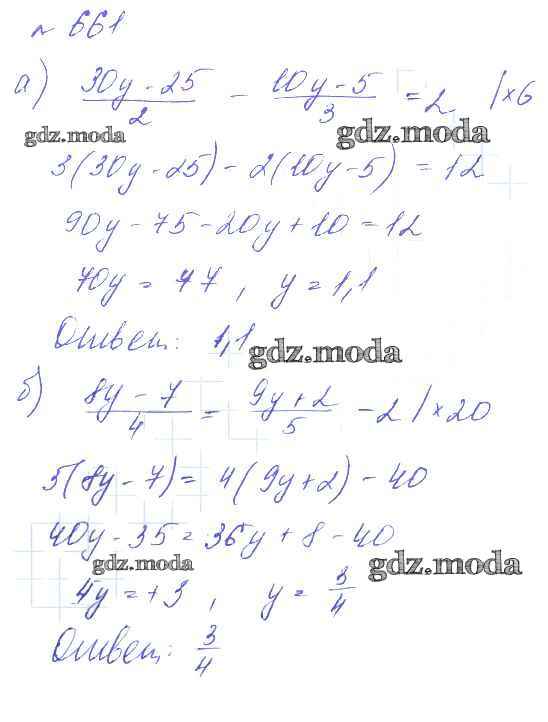 № 661
а) (30y - 25)/2 - (10y - 5)/3 = 2 | ×6
gdz.moda gdz.moda
3(30y - 25) - 2(10y - 5) = 12
90y - 75 - 20y + 10 = 12
70y = 77 , y = 1,1
Ответ: 1,1
gdz.moda
б) (8y - 7)/4 = (9y + 2)/5 - 2 | ×20
5(8y - 7) = 4(9y + 2) - 40
40y - 35 = 36y + 8 - 40
gdz.moda gdz.moda
4y = +3 , y = 3/4
Ответ: 3/4